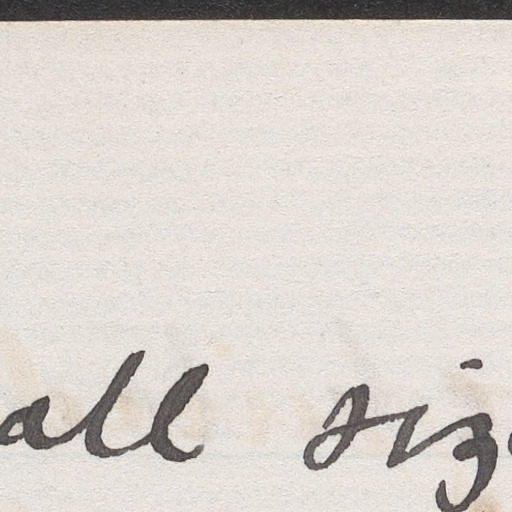 all siz